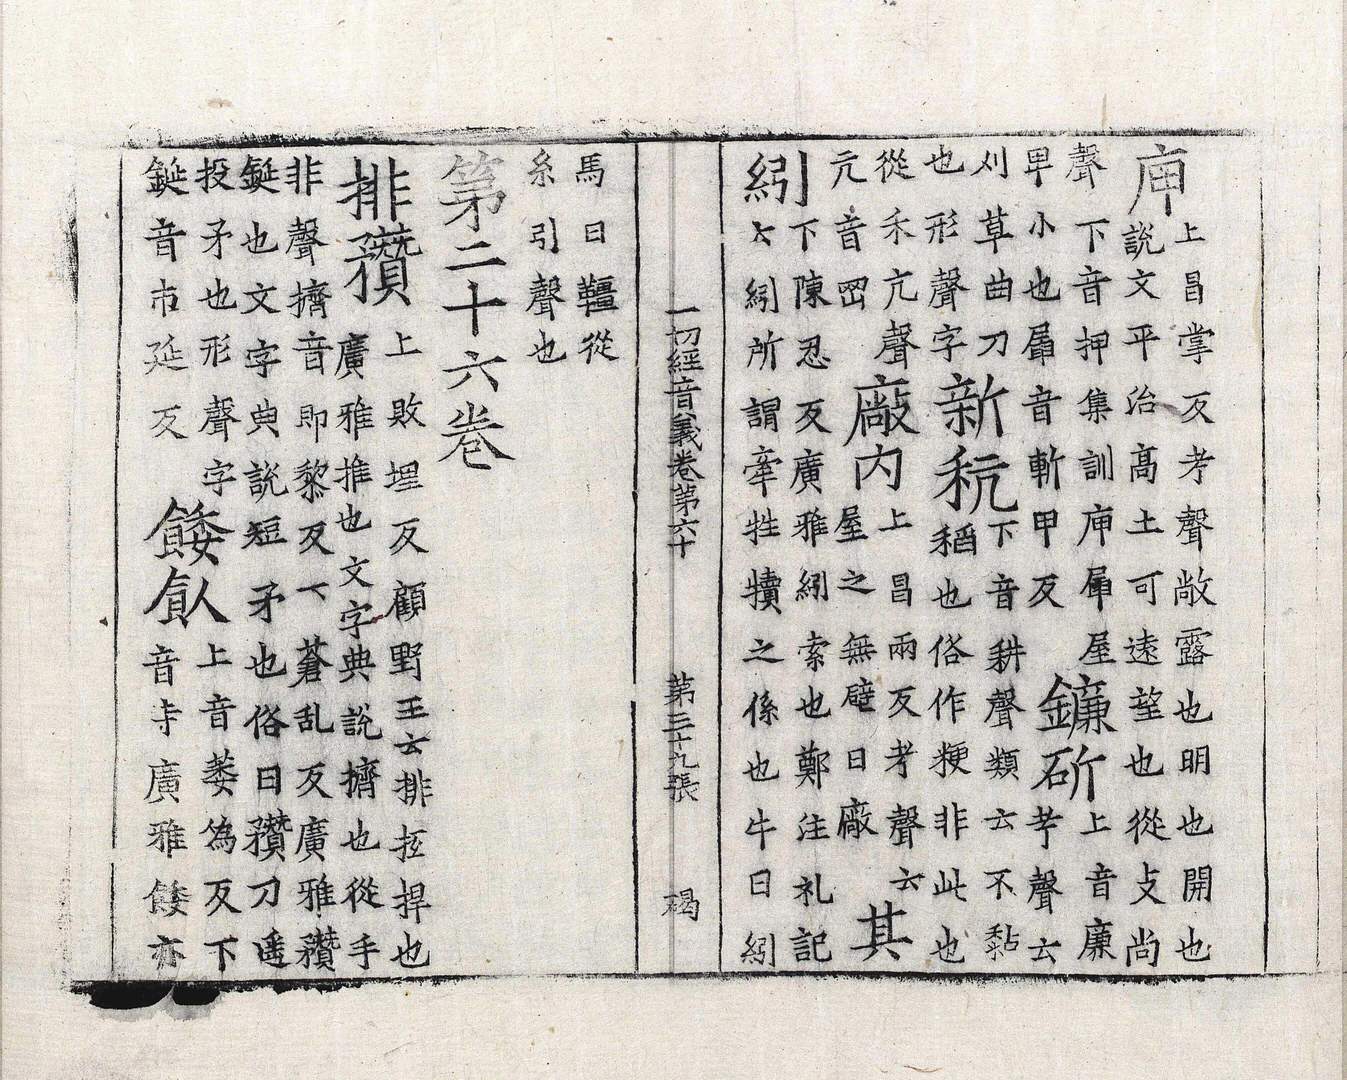 庘
上昌掌反考聲敞露也明也開也
說文平治高土可遠望也從攴尚
聲下音押集訓庘㡸屋
甲小也㡸音斬甲反
鐮斫
上音廉
芓聲云
刈草曲刀
也形聲字
新秔
下音耕聲類云不黏
稻也俗作粳非此也
從禾亢聲
亢音罡
廠內
上昌兩反考聲云
屋之無壁曰廠
其
紖
下陳忍反廣雅紖索也鄭注礼記
云紖所謂牽牲犢之係也牛曰紖
一切經音義卷第六十
第三十九張
碣
馬曰韁從
糸引聲也
第二十六卷
排穳
上敗埋反顧野王云排抂捍也
廣雅推也文字典說擠也從手
非聲擠音即黎反下蒼乱反廣雅穳
鋋也文字典說短矛也俗曰穳刀遥
投矛也形聲字
鋋音市延反
餧飤
上音萎為反下
音寺廣雅餧亦